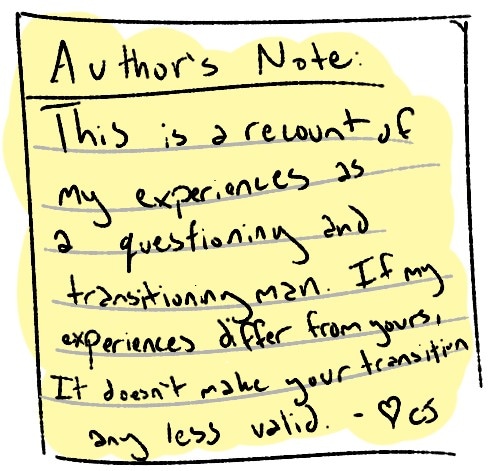 Author's Note:
This is a recount of
my experiences as
a questioning and
transitioning man. If my
experiences differ from yours,
It doesn't make your transition
any less valid. - ♡ CJ